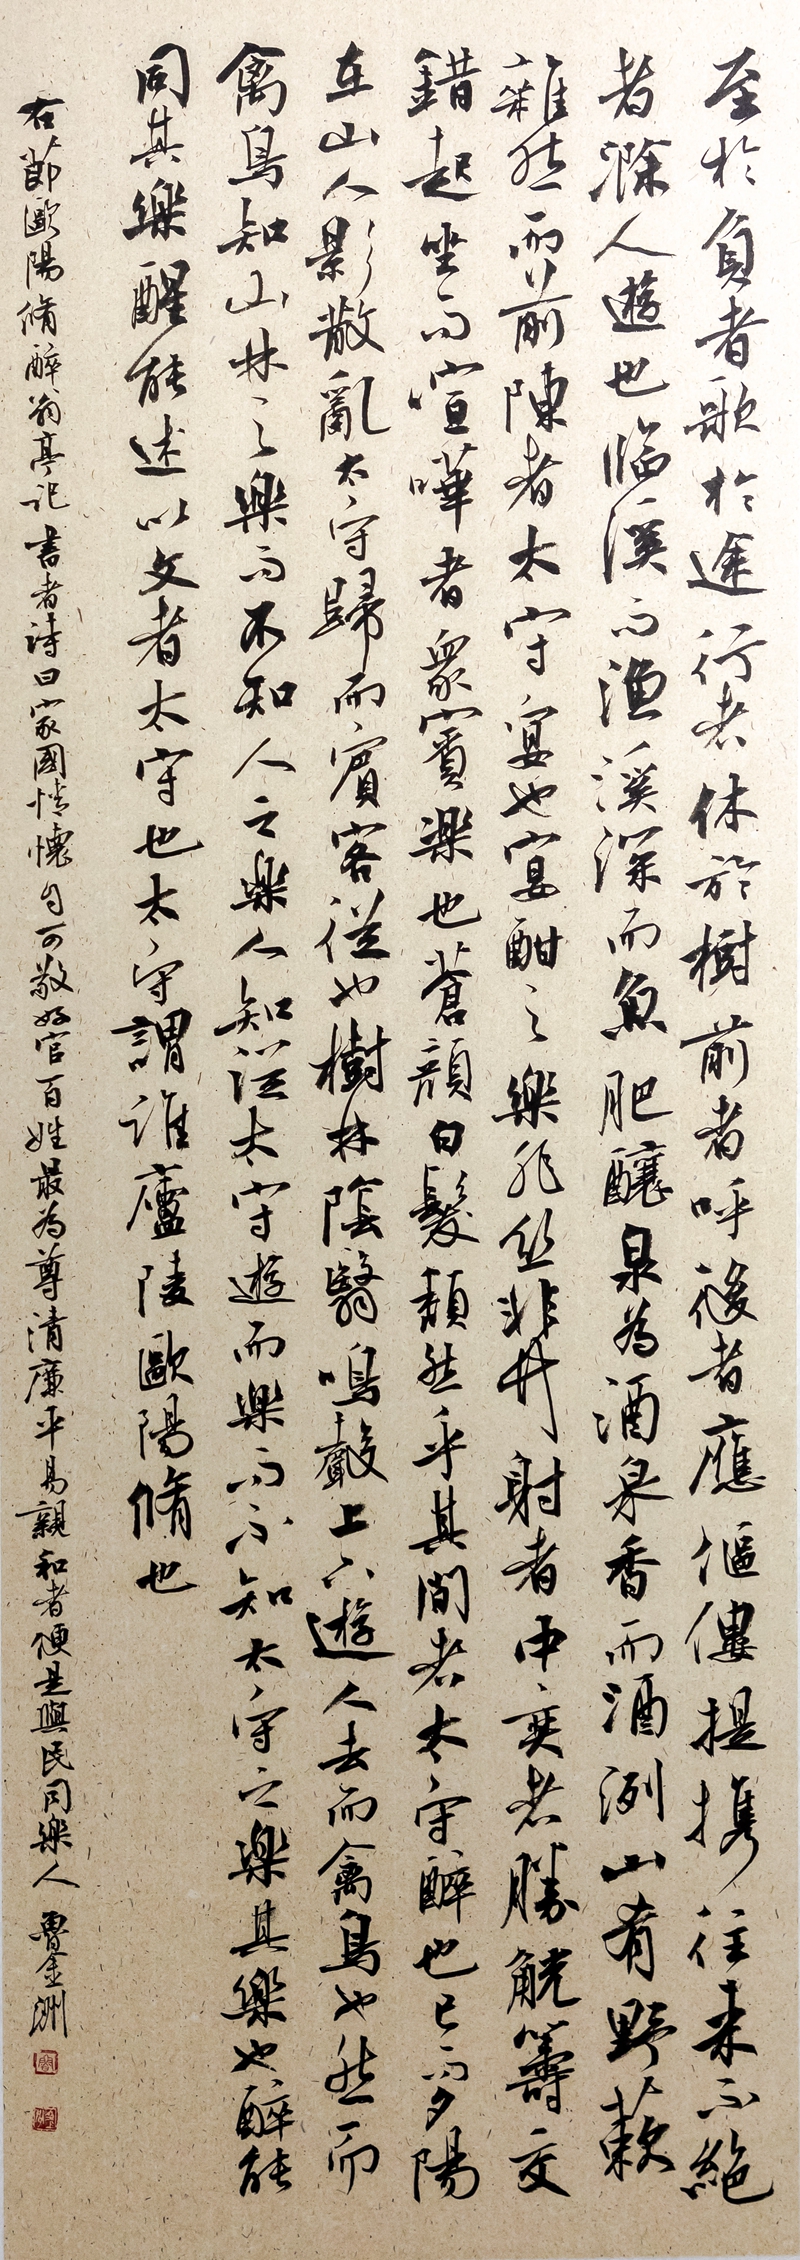 至於負者歌於途行者休於樹前者呼後者應傴僂提携往來不絕
者滁人遊也臨溪而漁溪深而魚肥釀泉為酒泉香而酒洌山肴野蔌
雜然而前陳者太守宴也宴酣之樂非絲非竹射者中奕者勝觥籌交
錯起坐而喧嘩者眾賓樂也蒼顏白髮頹然乎其間者太守醉也已而夕陽
在山人影散亂太守歸而賓客從也樹林陰翳鳴聲上下遊人去而禽鳥也然而
禽鳥知山林之樂而不知人之樂人知從太守遊而樂而不知太守之樂其樂也醉能
同其樂醒能述以文者太守也太守謂誰廬陵歐陽脩也
右節歐陽脩醉翁亭記書者詩曰家國情懷自可敬好官百姓最為尊清廉平易親和者便是與民同樂人 曹金洲